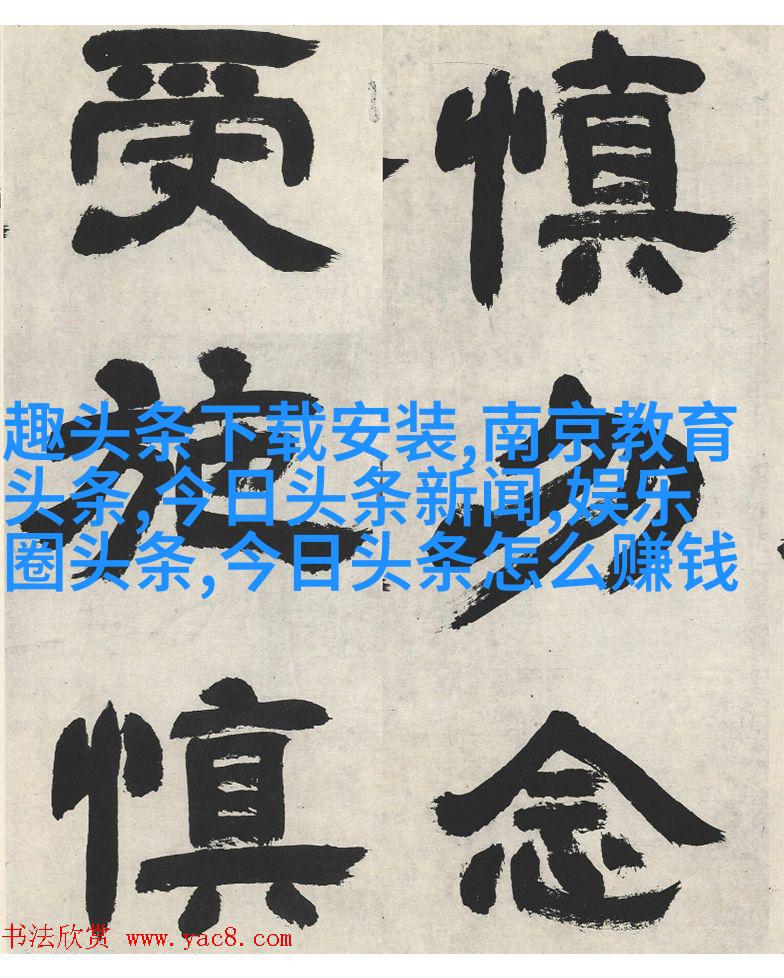 慎勿念
受施慎
趣头条下载安装,南京教育
头条,今日头条新闻,娱乐
圈头条,今日头条怎么赚钱
书法欣赏 www.yac8.com